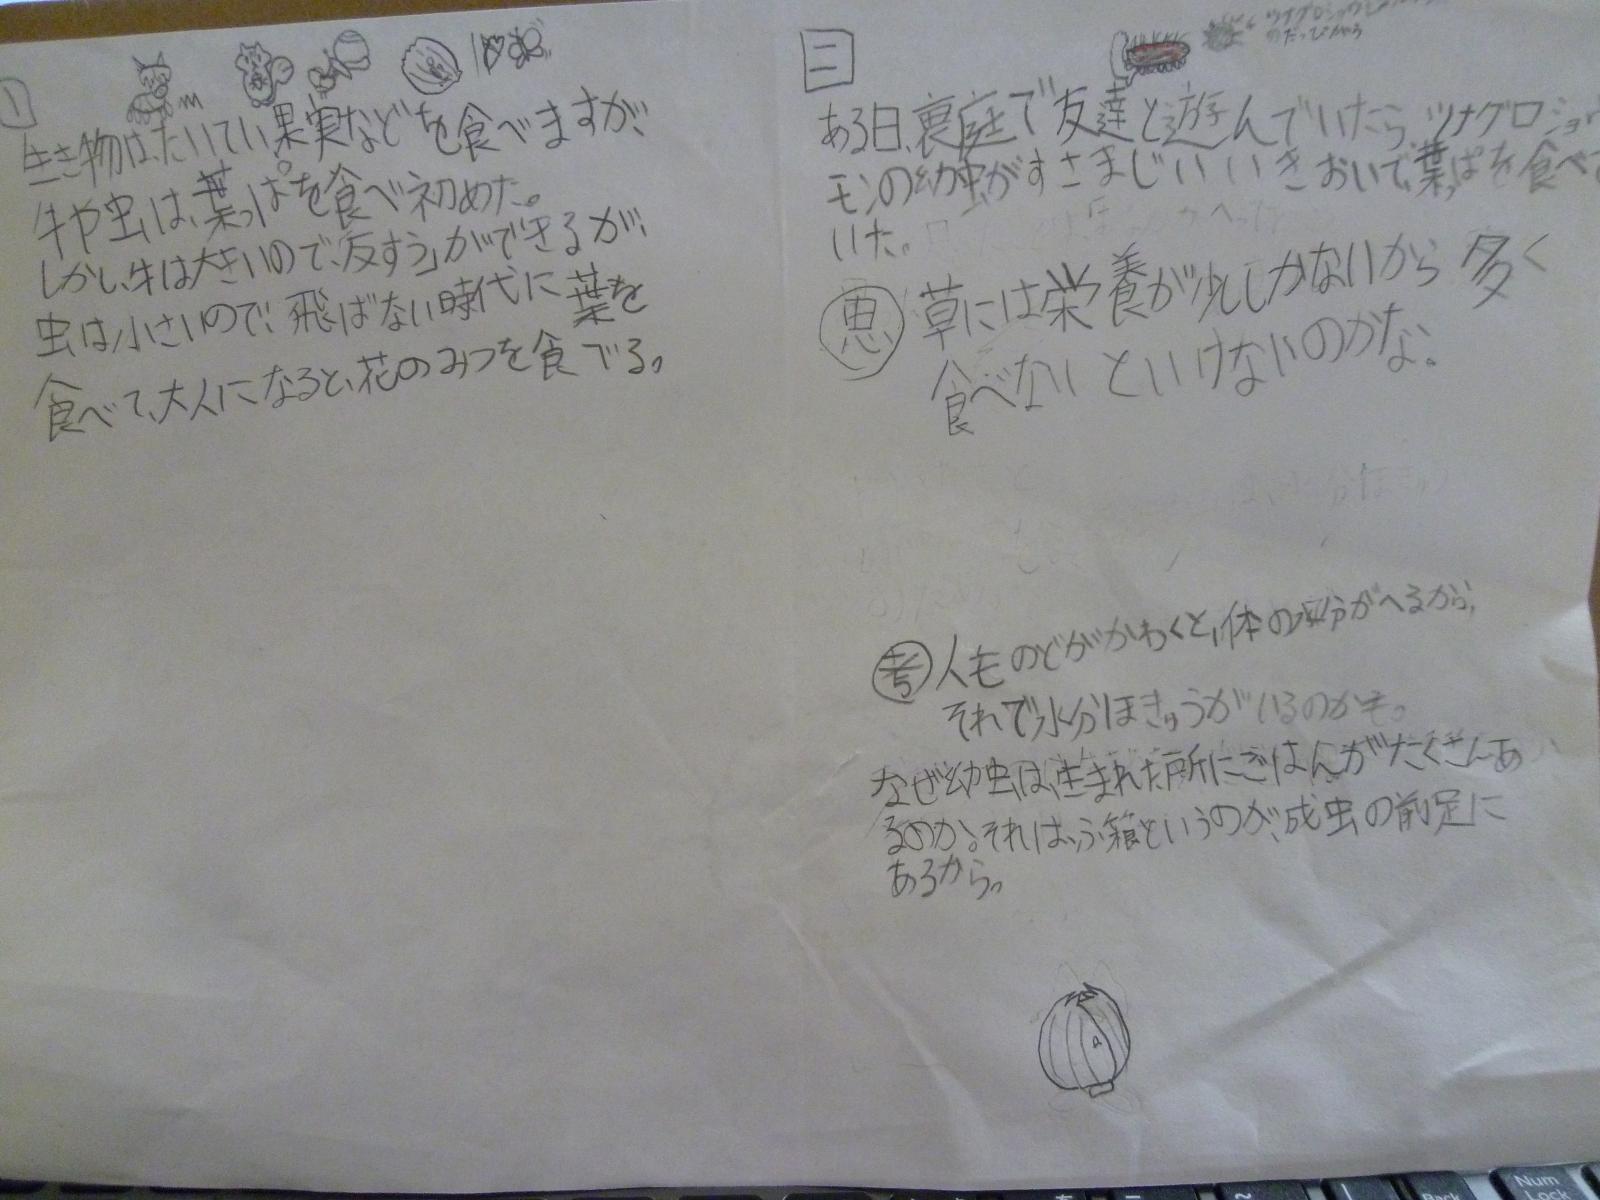 1
生き物は、たいてい果実などを食べますが、
牛や虫は、葉っぱを食べ初めた。
しかし、牛は大きいので、「反すう」ができるが、
虫は小さいので、飛ばない時代に葉を
食べて、大人になると、花のみつを食でる。
二
のだっぴがら
ある日、裏庭で友達と遊んでいたら、ツナグロショウ
モンの幼虫がすさまじいいきおいで、葉っぱを食べて
いた。
恵 草には栄養が少ししかないから多く
食べないといけないのかな。
考 人ものどがかわくと、体の水分がへるから、
それで水分ほきゅうがいるのかも。
なぜ幼虫は、生まれた所にごはんがたくさんあ
るのか。それは、ふ箱というのが、成虫の前足に
あるから。
Num
Back